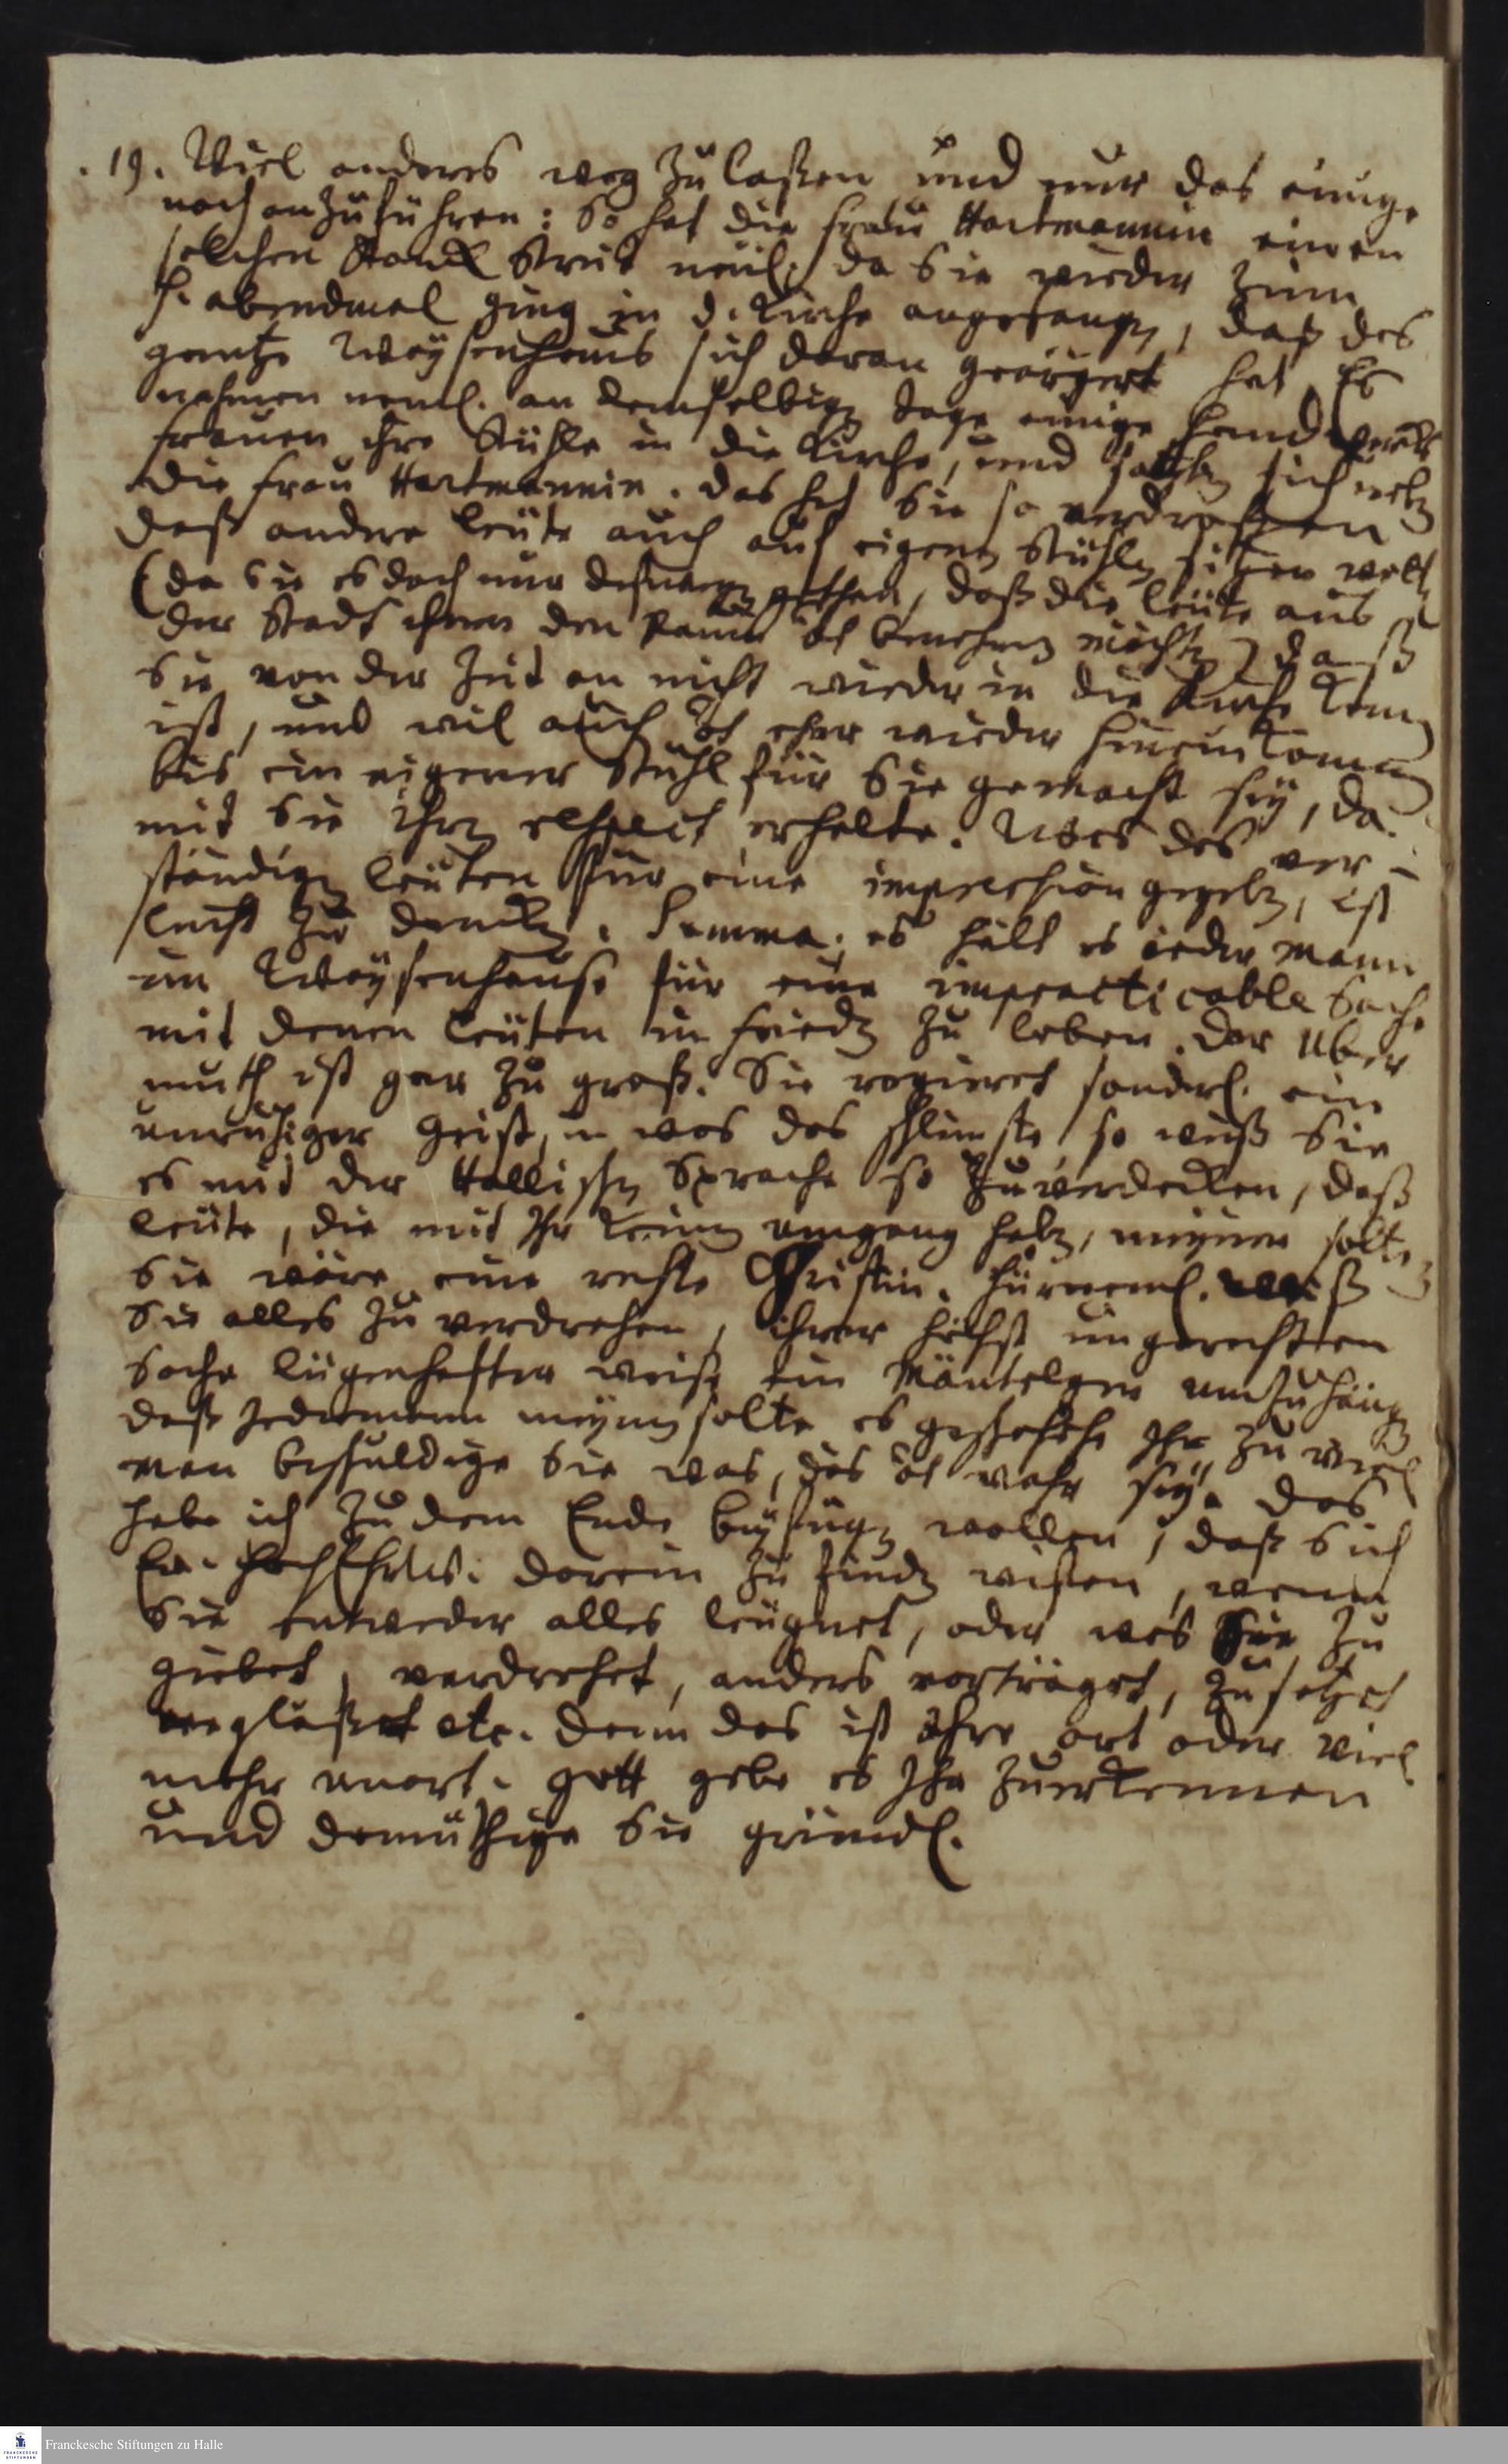 19. Viel anders weg zu laßen und nur das einige
noch anzuführen: So hat die Frau Hartmannin einen
solchen Streit neul. da Sie wieder zum
h. abendmal ging in d. Kirche angefangen, daß das
gantze Waysenhaus sich daran geärgert hat. Es
nahmen neml. an demselbigen tage einige Handwercks
frauen ihre Stühle in die Kirche, und satzten sich neben
die Frau Hartmannin. das hat Sie so verdroßen
daß andere leüte auch auf eigenen Stühlen sitzen wolten
(da Sie es doch nur deswegen gethan, daß die leüte aus
der Stadt ihnen den Raum nicht benehmen möchten) daß
Sie von der Zeit an nicht wieder in die Kirche kommen
ist, und wil auch nicht eher wieder hinein kommen
bis ein eigener Stuhl für Sie gemacht sey, da-
mit Sie ihren respect erhalte. Was das ver-
ständigen leüten für eine impression gegeben, ist
leicht zu dencken. Summa. es hält es ieder mann
im Waysenhause für eine impracticable Sache
mit denen leüten in frieden zu leben. Der Uber
muth ist gar zu groß. Sie regieret sonderl. ein
unruhiger Geist, u. was das schlimste, so weiß Sie
es mit der Hallischen Sprache so zuverdecken, daß
leüte, die mit Ihr keinen umgang haben, meynen solten
Sie wäre eine rechte Christin. Fürneml. weiß
Sie alles zu verdrehen, ihrer höchst ungerechten
Sache lügenhafter weise ein Mäntelgen umzuhängen
daß Jederman meynen solte es geschehe Ihr zu viel
man beschuldige Sie was, das nicht wahr sey. Das
habe ich zu dem Ende beyfügen wollen, daß Sich
Ew. HochEhrw. darein zu finden wißen, wenn
Sie entweder alles leugnet, oder was Sie zu
giebet, verdrehet, anders vorträget, zusetzet
wegläßet etc. denn das ist Ihre art oder viel
mehr unart. Gott gebe es Ihr zuerkennen
und demüthige Sie gründl.
Franckesche Stiftungen zu Halle